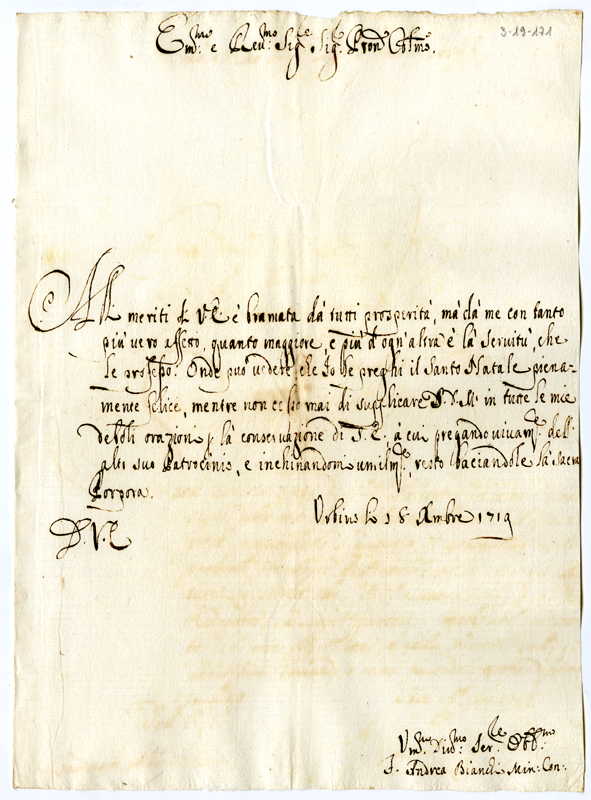 3-19-171
Em:mo e Reu:mo Sig:re Sig:r Pron: Col:mo
Alli meriti di V.E. è bramata dà tutti prosperità, mà dà me con tanto
più vero affetto, quanto maggiore, e più d'ogn'altra è la seruitù, che
le professo. Onde può vedere, che Io le preghi il Santo Natale piena-
mente felice, mentre non cesso mai di supplicare S.D.M. in tutte le mie
deboli orazioni p la conseruazione di V.E. à cui pregando viuam:te dell'
alto suo Patrocinio, e inchinandomi umilm:te, resto baciandole la Sacra
Porpora.
Urbino li 18 Xmbre 1719
D. V. E.
Um:mo Diu:mo Ser:re Obb:mo
F. Andrea Bianchi Min: Con: